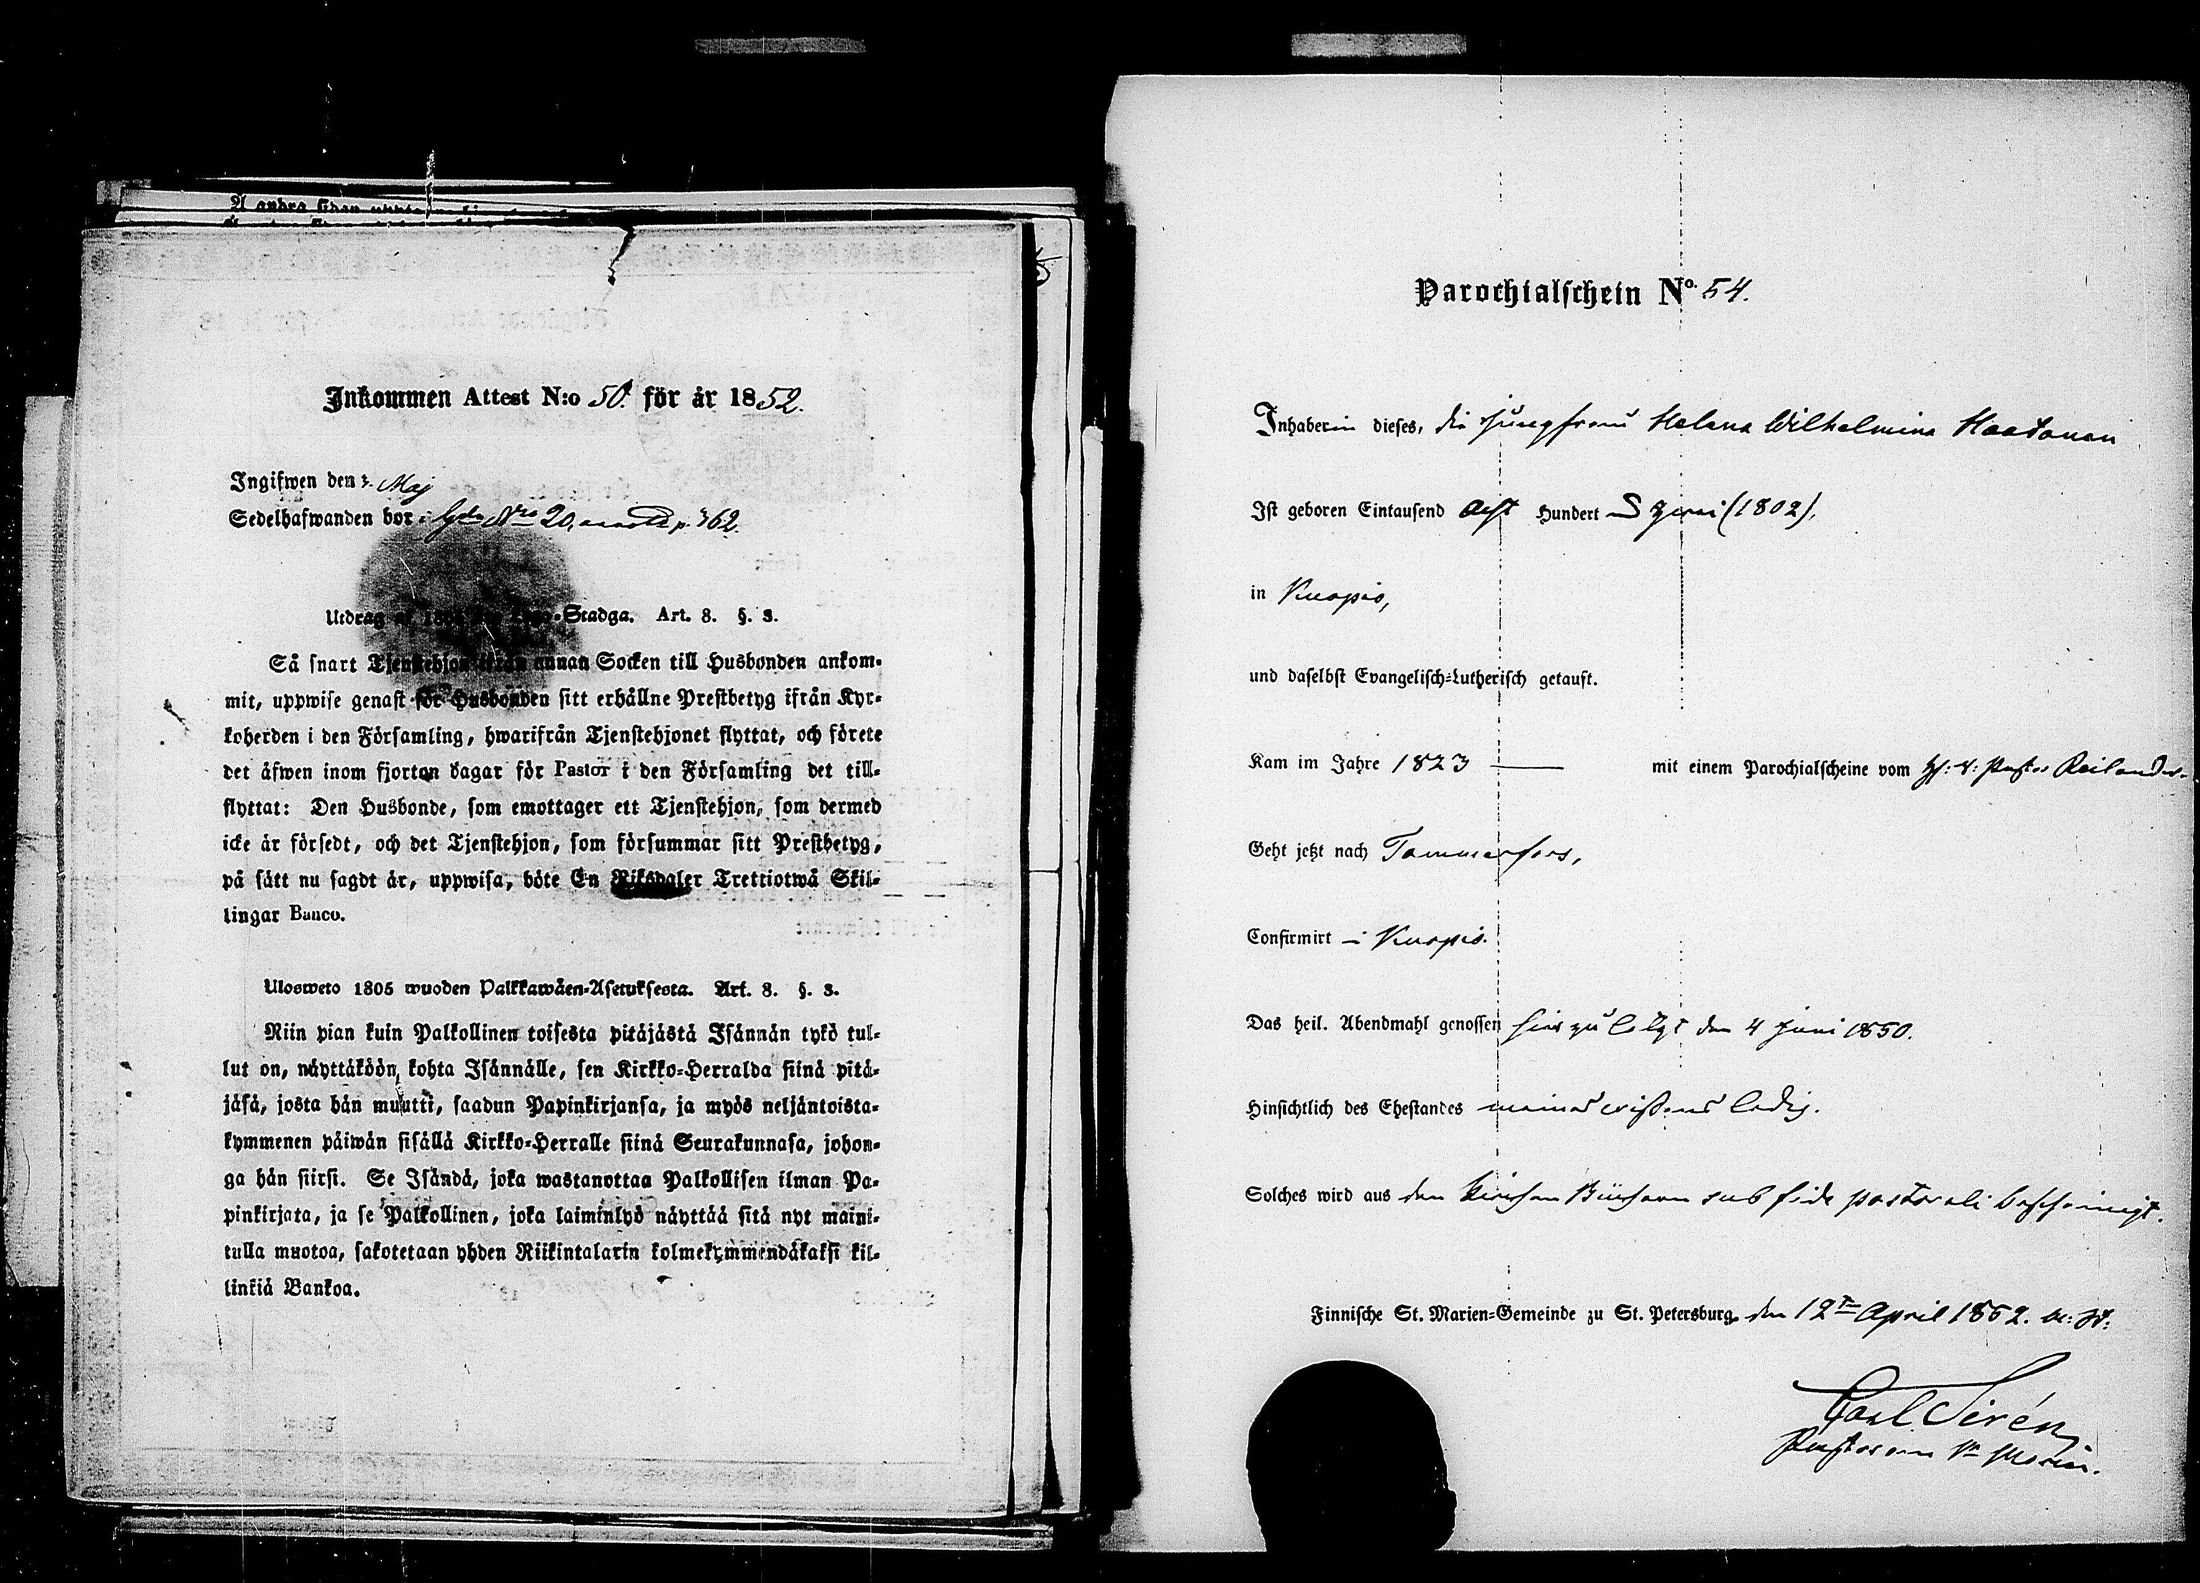 Inkommen Attest N:o 50. för år 1852.
Ingifwen den 3. Maj
Sedelhafwanden bor i Gdn Nro 20, p. 362.
Utdrag Stadga. Art. 8. §. 3.
Så snart Tjenstehjon ifrån annan Socken till Husbonden ankom-
mit, uppwise genast för Husbonden sitt erhållne Prestbetyg ifrån Kyr-
koherden i den Församling, hwarifrån Tjenstehjonet flyttat, och förete
det äfwen inom fjorton dagar för Pastor i den Församling det till-
flyttat: Den Husbonde, som emottager ett Tjenstehjon, som dermed
icke är försedt, och det Tjenstehjon, som försummar sitt Prestbetyg,
på sätt nu sagdt är, uppwisa, böte En Riksdaler Trettiotwå Skil-
lingar Banco.
Ulosweto 1805 wuoden Palkkawäen-Asetuksesta. Art. 8. §. 3.
Niin pian kuin Palkollinen toisesta pitäjästä Isännän tykö tul-
lut on, näyttäköön kohta Isännälle, sen Kirkko-Herralda siinä pitä-
jäsä, josta hän muutti, saadun Papinkirjansa, ja myös neljäntoista-
kymmenen päiwän sisällä Kirkko-Herralle siinä Seurakunnasa, johon-
ga hän siirsi. Se Isändä, joka wastanottaa Palkollisen ilman Pa-
pinkirjata, ja se Palkollinen, joka laiminlyö näyttää sitä nyt maini-
tulla muotoa, sakotetaan yhden Riikintalarin kolmekymmendäkaksi kil-
linkiä Bankoa.
Parochialschein No. 54.
Inhaberin dieses, die Jungfrau Helena Wilhelmina Haatanen
Ist geboren Eintausend Acht Hundert zwei (1802),
in Kuopio,
und daselbst Evangelisch-Lutherisch getauft.
Kam im Jahre 1823 — mit einem Parochialscheine vom H: V: Pastor Reilander.
Geht jetzt nach Tammerfors,
Confirmirt i Kuopio.
Das heil. Abendmahl genossen hier zu letzt den 4 Juni 1850.
Hinsichtlich des Ehestandes meines wissens ledig.
Solches wird aus den Kirchen Büchern sub fide pastorali bescheinigt.
Finnische St. Marien-Gemeinde zu St. Petersburg, den 12ten April 1852. a: St:
Carl Sirén,
Pastor an St Marien.